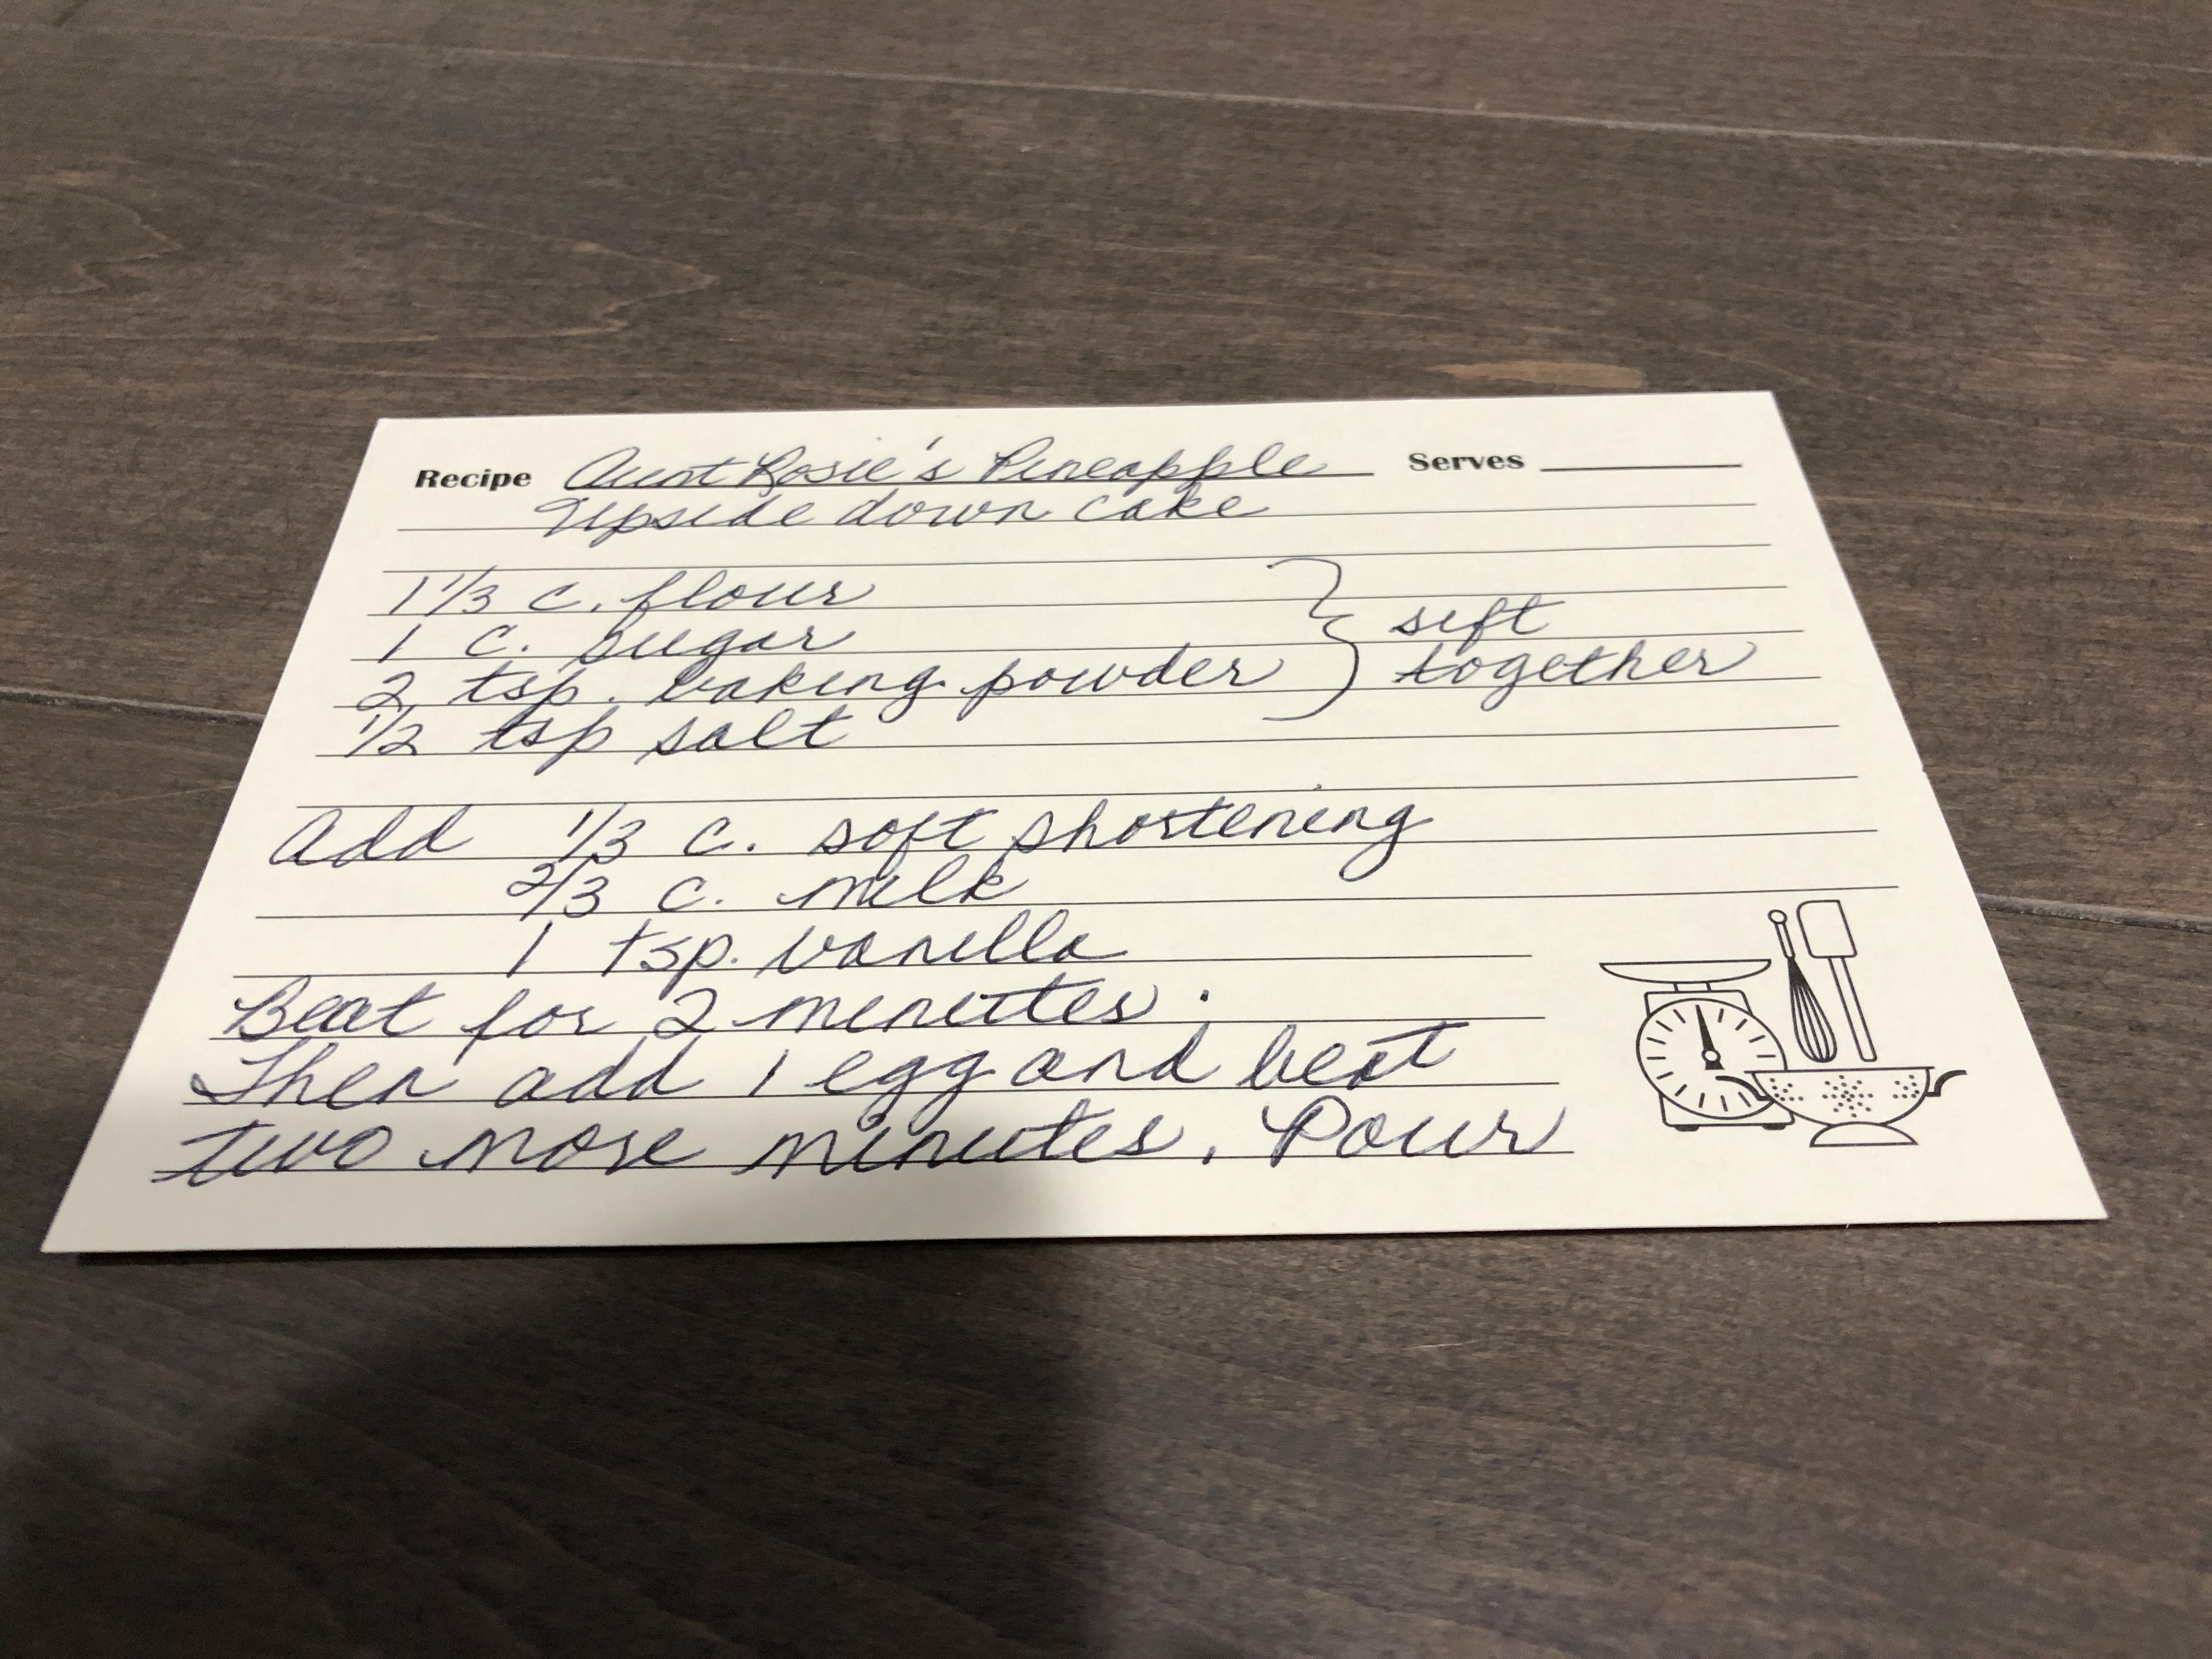 Recipe Aunt Rosie's Pineapple Serves
Upside down cake
1 1/3 c. flour
1 c. sugar
2 tsp. baking powder
1/2 tsp salt
sift
together
Add 1/3 c. soft shortening
2/3 c. milk
1 tsp. vanilla
Beat for 2 minutes.
Then add 1 egg and beat
two more minutes. Pour